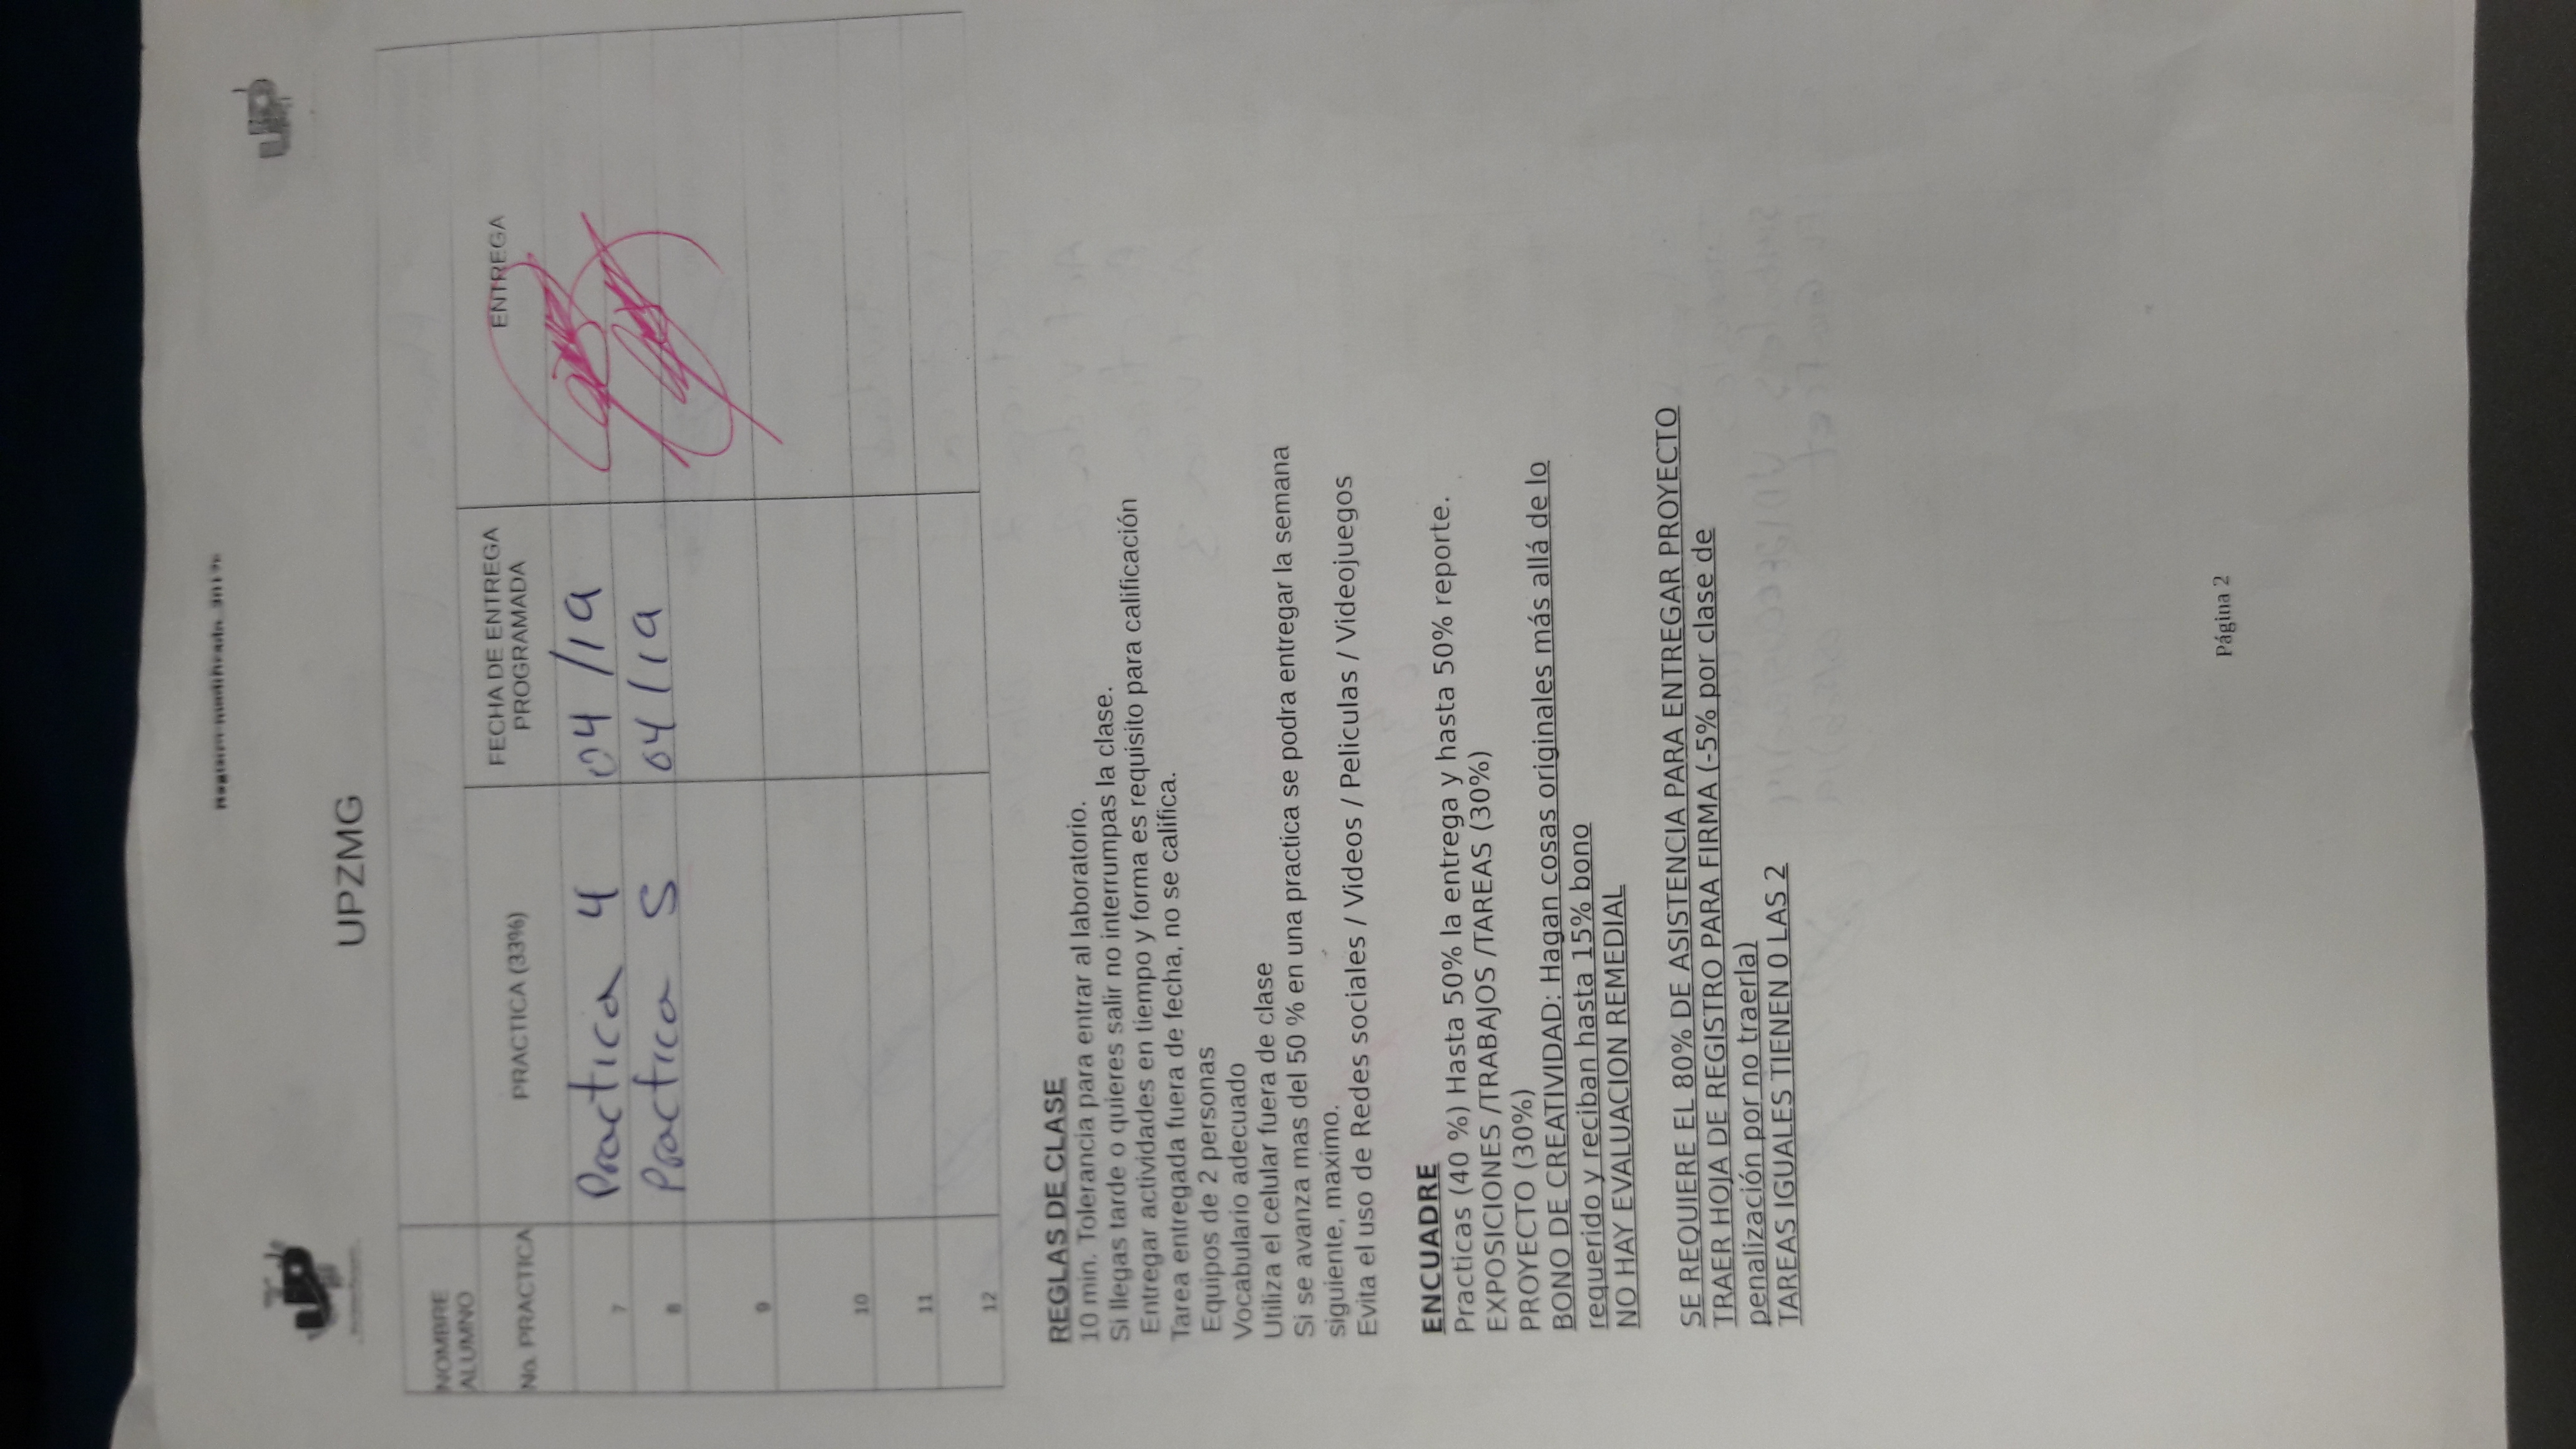 UPZMG
NOMBRE
ALUMNO
No. PRACTICA
PRACTICA (33%)
FECHA DE ENTREGA
PROGRAMADA
ENTREGA
7 Practica 4 04 /19
8 Practica 5 04/19
9
10
11
12
REGLAS DE CLASE
10 min. Tolerancia para entrar al laboratorio.
Si llegas tarde o quieres salir no interrumpas la clase.
Entregar actividades en tiempo y forma es requisito para calificación
Tarea entregada fuera de fecha, no se califica.
Equipos de 2 personas
Vocabulario adecuado
Utiliza el celular fuera de clase
Si se avanza mas del 50 % en una practica se podra entregar la semana
siguiente, maximo.
Evita el uso de Redes sociales / Videos / Peliculas / Videojuegos
ENCUADRE
Practicas (40 %) Hasta 50% la entrega y hasta 50% reporte.
EXPOSICIONES /TRABAJOS /TAREAS (30%)
PROYECTO (30%)
BONO DE CREATIVIDAD: Hagan cosas originales más allá de lo
requerido y reciban hasta 15% bono
NO HAY EVALUACION REMEDIAL
SE REQUIERE EL 80% DE ASISTENCIA PARA ENTREGAR PROYECTO
TRAER HOJA DE REGISTRO PARA FIRMA (-5% por clase de
penalización por no traerla)
TAREAS IGUALES TIENEN 0 LAS 2
Página 2